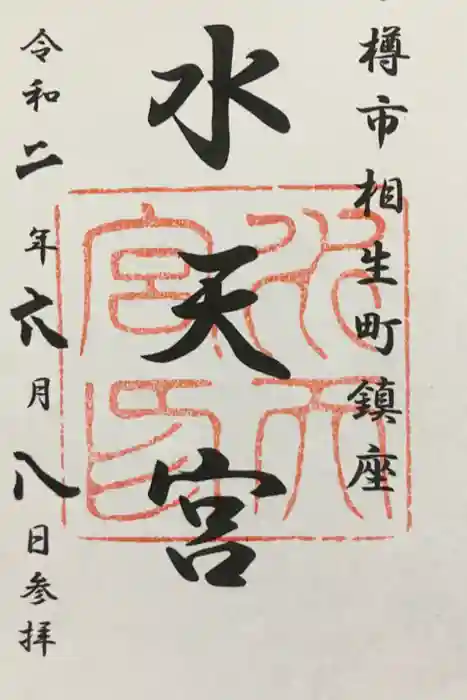 樽市相生町鎮座
水天宮
水天宮印
令和二年六月八日参拝